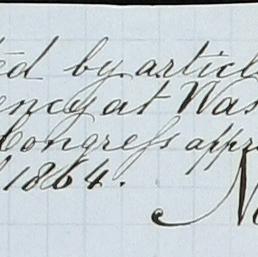 ted by articl
ency at Was
Congress appr
1864.
No